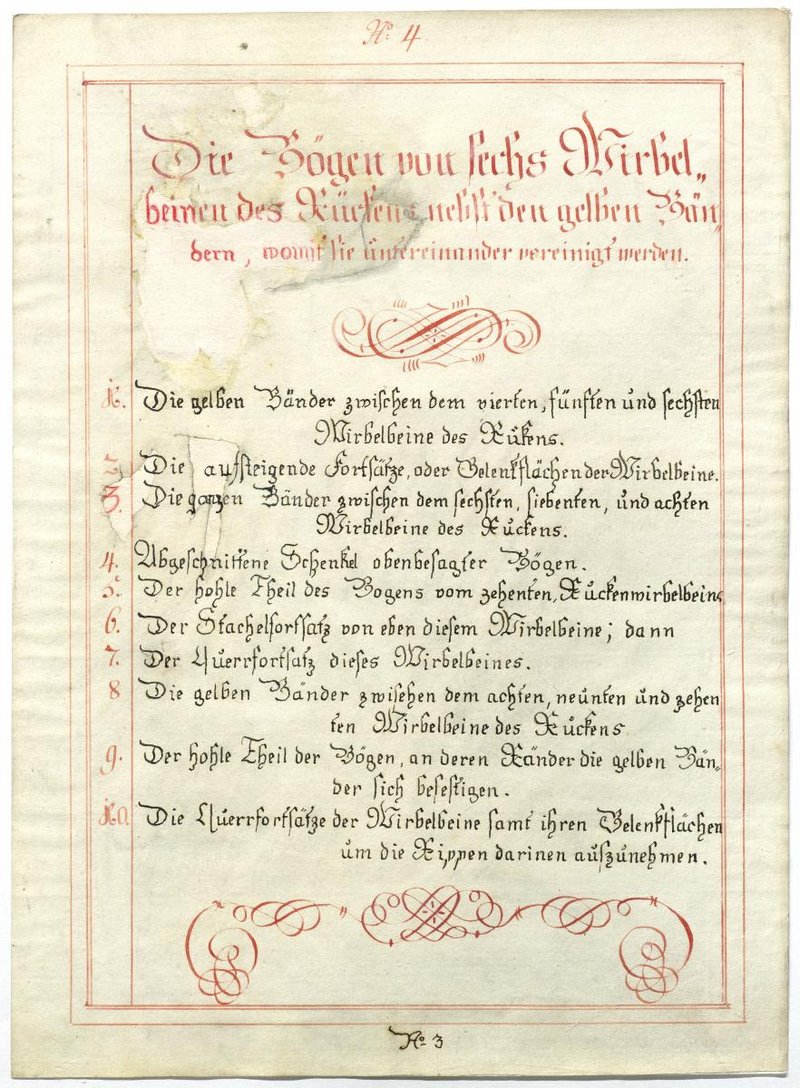 No. 4
Die Bögen von sechs Wirbel„
beinen des Rückens nebst den gelben Bän„
dern, womit sie untereinander vereinigt werden.
1. Die gelben Bänder zwischen dem vierten, fünften und sechsten
Wirbelbeine des Rükens.
2. Die aufsteigende Fortsätze, oder Gelenkflächen der Wirbelbeine.
3. Die ganzen Bänder zwischen dem sechsten, siebenten, und achten
Wirbelbeine des Ruckens.
4. Abgeschnittene Schenkel obenbesagter Bögen.
5. Der hohle Theil des Bogens vom zehenten, Ruckenwirbelbeine
6. Der Stachelfortsatz von eben diesem Wirbelbeine; dann
7. Der Querrfortsatz dieses Wirbelbeines.
8 Die gelben Bänder zwischen dem achten, neunten und zehen
ten Wirbelbeine des Ruckens
9. Der hohle Theil der Bögen, an deren Ränder die gelben Bän„
der sich befestigen.
10. Die Querrfortsätze der Wirbelbeine samt ihren Gelenkflächen
um die Rippen darinen aufzunehmen.
No. 3